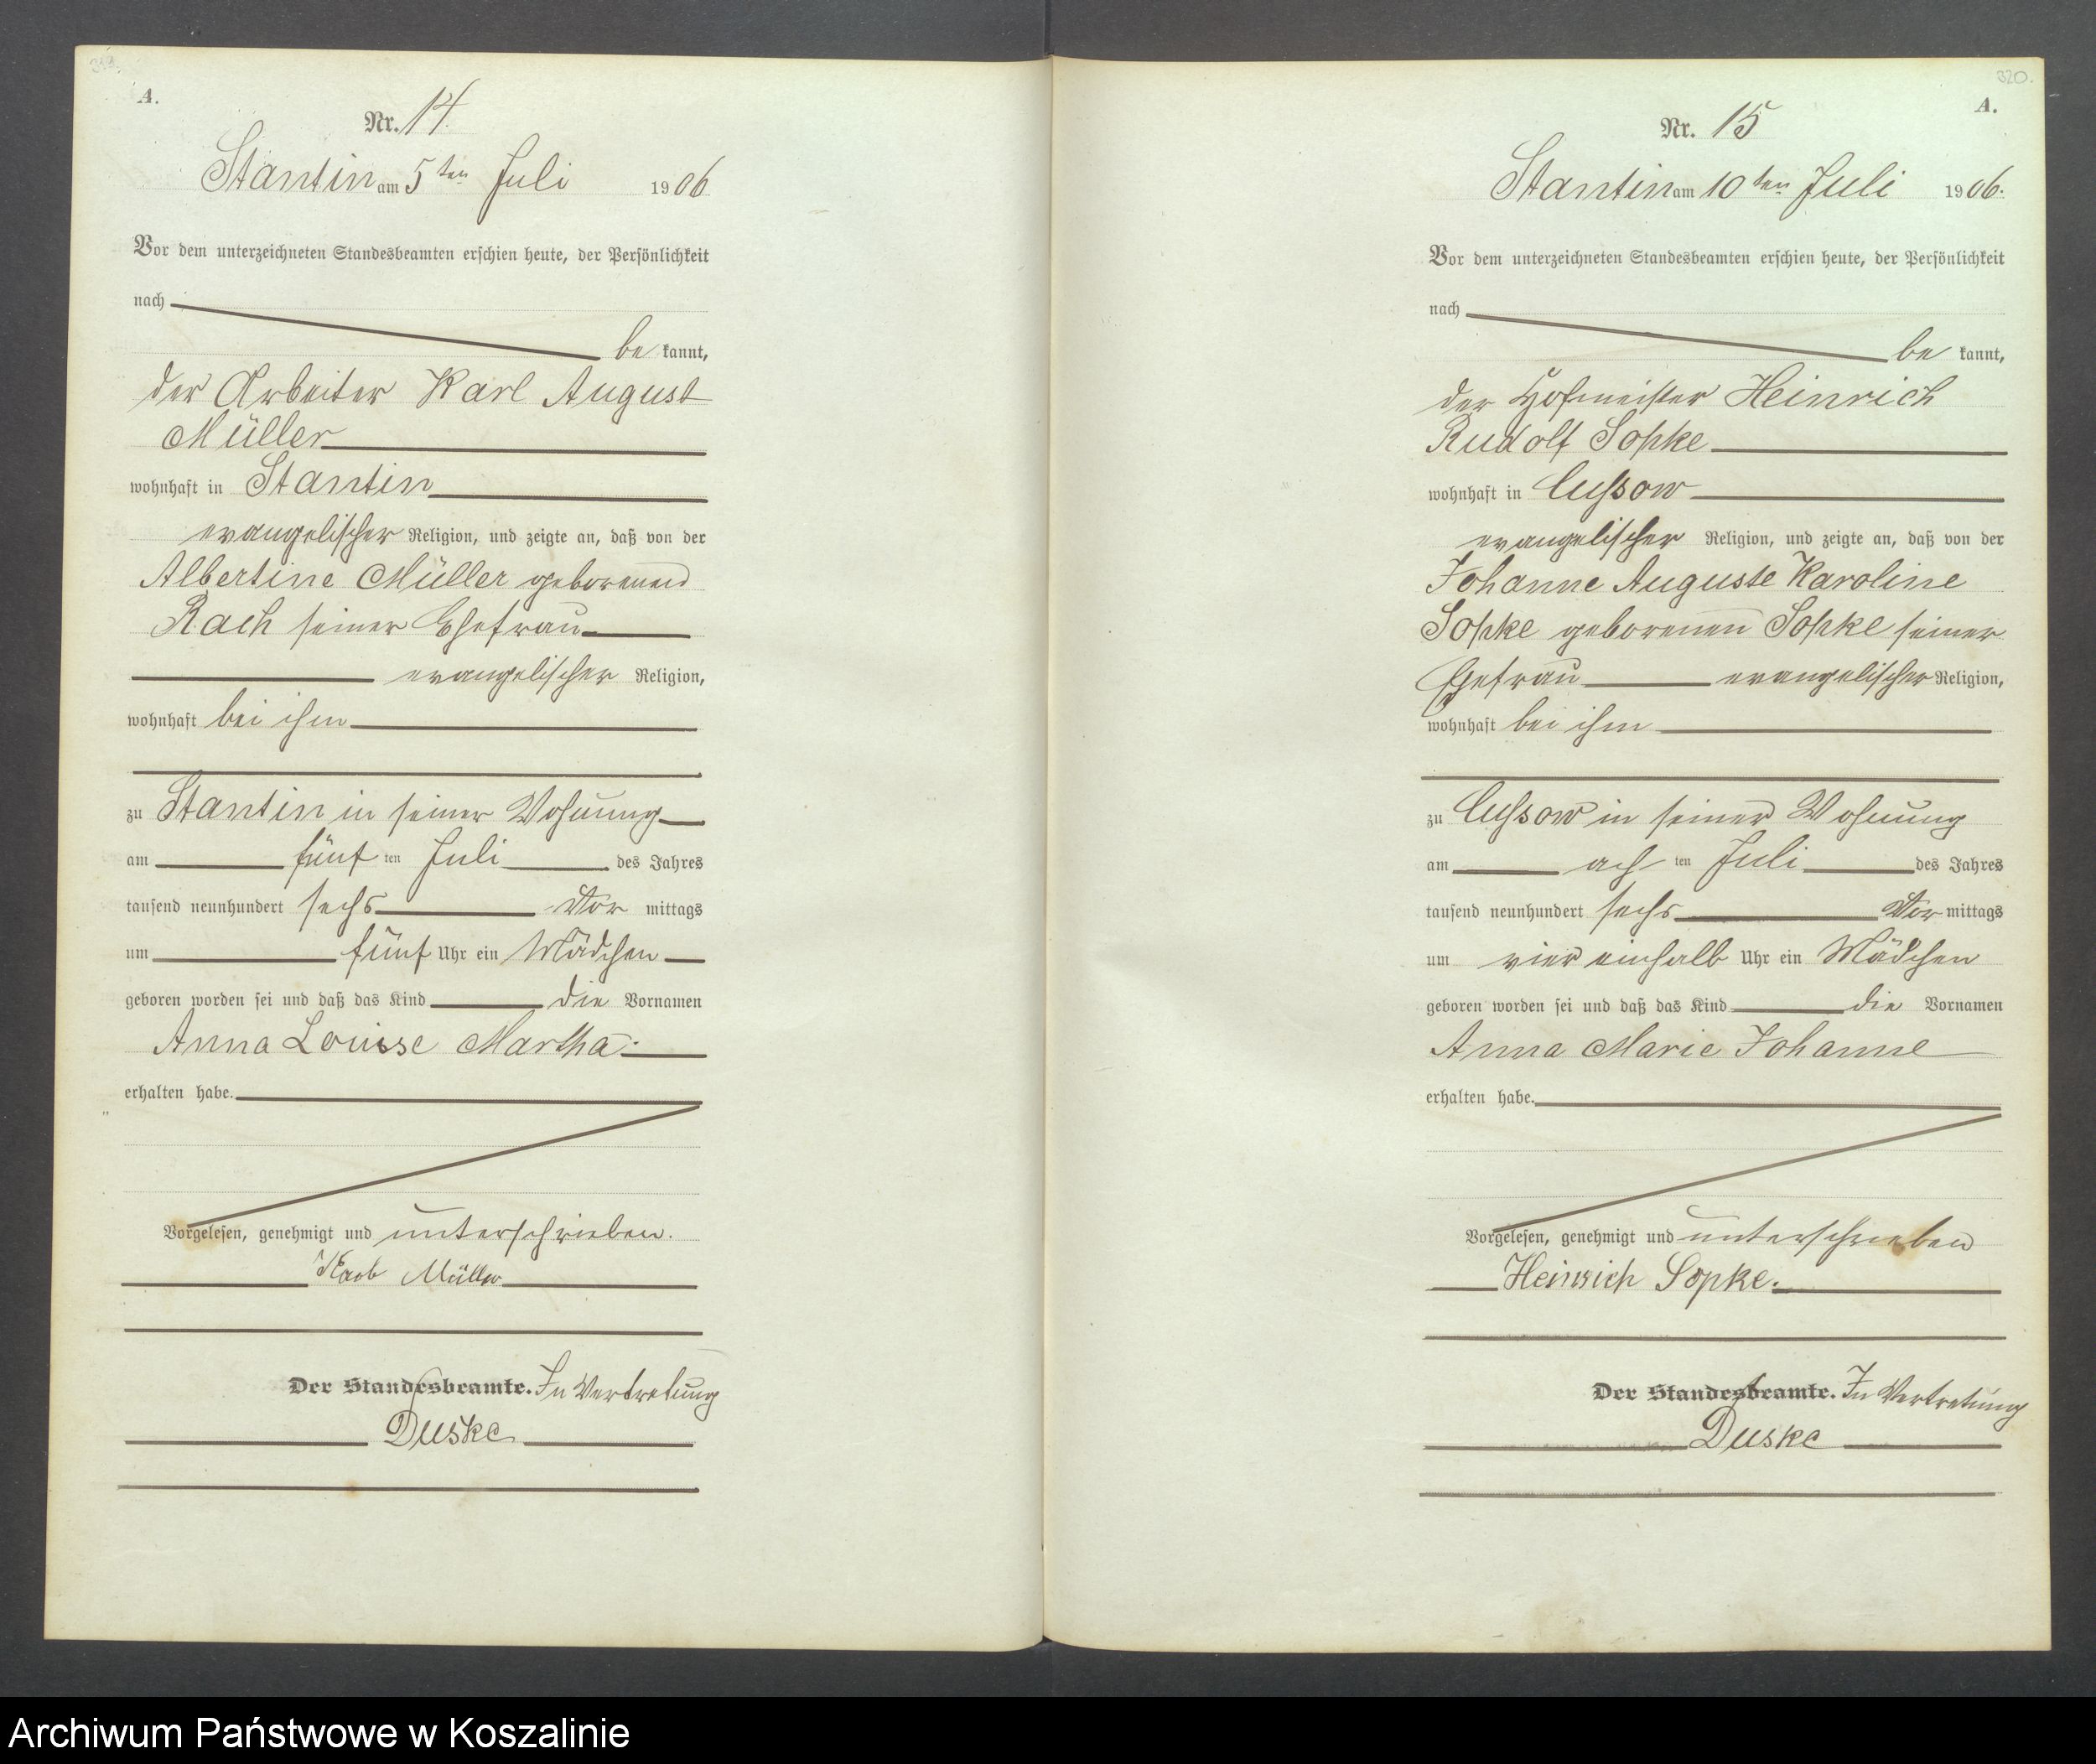 A.
Nr. 14.
Stantin am 5ten Juli 1906
Vor dem unterzeichneten Standesbeamten erschien heute, der Persönlichkeit
nach
be kannt,
der Arbeiter Karl August
Müller
wohnhaft in Stantin
evangelischer Religion, und zeigte an, daß von der
Albertine Müller geborenen
Rach seiner Ehefrau
evangelischer Religion,
wohnhaft bei ihm
zu Stantin in seiner Wohnung
am fünf ten Juli des Jahres
tausend neunhundert sechs Vor mittags
um fünf Uhr ein Mädchen
geboren worden sei und daß das Kind die Vornamen
Anna Louise Martha
erhalten habe.
Vorgelesen, genehmigt und unterschrieben.
Müller
Der Standesbeamte. In Vertretung
Duske
320.
A.
Nr. 15
Stantin am 10ten Juli 1906.
Vor dem unterzeichneten Standesbeamten erschien heute, der Persönlichkeit
nach
be kannt,
der Hofmeister Heinrich
Rudolf Sopke
wohnhaft in Cussow
evangelischer Religion, und zeigte an, daß von der
Johanne Auguste Karoline
Sopke geborenen Sopke seiner
Ehefrau evangelischer Religion,
wohnhaft bei ihm
zu Cussow in seiner Wohnung
am ach ten Juli des Jahres
tausend neunhundert sechs Vor mittags
um vier einhalb Uhr ein Mädchen
geboren worden sei und daß das Kind die Vornamen
Anna Marie Johanne
erhalten habe.
Vorgelesen, genehmigt und unterschrieben
Heinrich Sopke.
Der Standesbeamte. In Vertretung
Duske
Archiwum Państwowe w Koszalinie